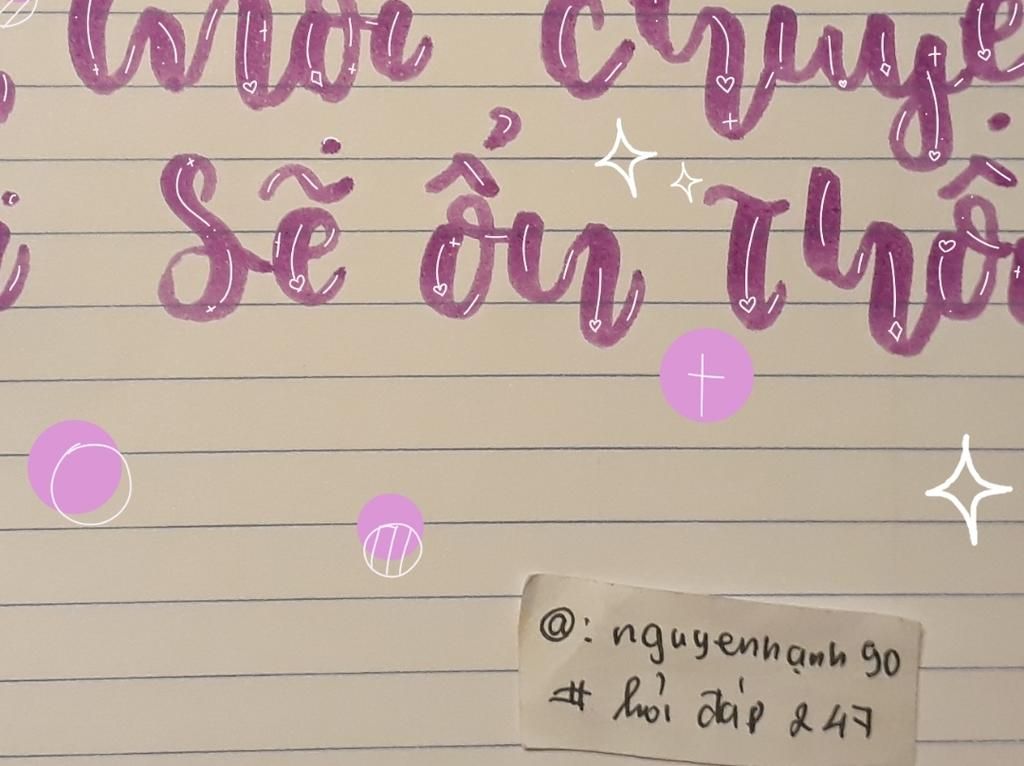 mọi chuyệ
i sẽ ổn thô
@: nguyenhạnh 90
# hỏi đáp 247